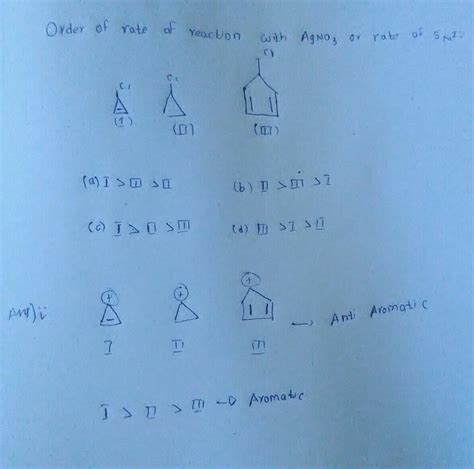 Order of rate of reaction with AgNO3 or rate of SN1:-
Cl Cl Cl
(I) (II) (III)
(a) I > III > II (b) II > III > I
(c) I > II > III (d) III > I > II
Ans) i
+ + +
→ Anti Aromatic
I II III
I > II > III → Aromatic